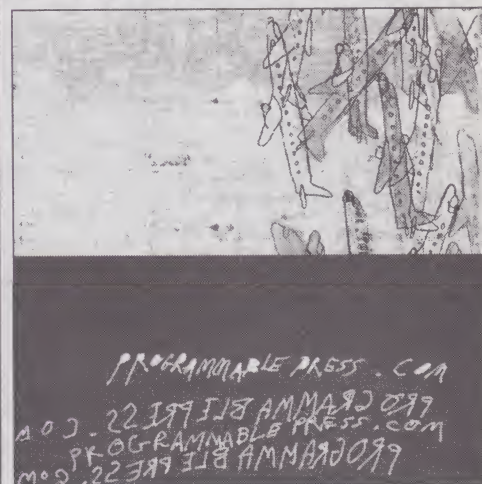 PROGRAMMABLE PRESS . COM
PROGRAMMABLE PRESS. COM
PROGRAMMABLE PRESS.COM
PROGRAMMABLE PRESS. COM